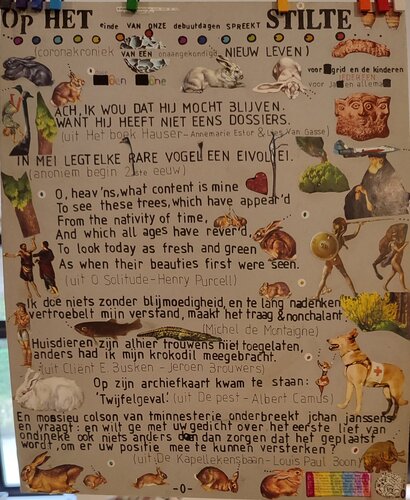 OP HET einde VAN ONZE debuutdagen SPREEKT STILTE
(coronakroniek VAN EEN onaangekondigd NIEUW LEVEN)
voor Sigrid en de kinderen
IEDEREEN
ACH, IK WOU DAT HIJ MOCHT BLIJVEN.
WANT HIJ HEEFT NIET EENS DOSSIERS.
(uit Het boek Hauser - Annemarie Estor & Lies Van Gasse)
IN MEI LEGT ELKE RARE VOGEL EEN EIVOLEI.
(anoniem begin 21ste eeuw)
O, heav'ns, what content is mine
To see these trees, which have appear'd
From the nativity of time,
And which all ages have rever'd,
To look today as fresh and green
As when their beauties first were seen.
(uit O Solitude - Henry Purcell)
Ik doe niets zonder blijmoedigheid, en te lang nadenken
vertroebelt mijn verstand, maakt het traag & nonchalant.
(Michel de Montaigne)
Huisdieren zijn alhier trouwens niet toegelaten,
anders had ik mijn krokodil meegebracht.
(uit Cliënt E. Busken - Jeroen Brouwers)
Op zijn archiefkaart kwam te staan:
'Twijfelgeval'. (uit De pest - Albert Camus)
En mossieu colson van tministerie onderbreekt johan janssens
en vraagt: en wilt ge met uw gedicht over het eerste lief van
ondineke ook niets anders doen dan zorgen dat het geplaatst
wordt, om er uw positie mee te kunnen versterken?
(uit De Kapellekensbaan - Louis Paul Boon)
-0-